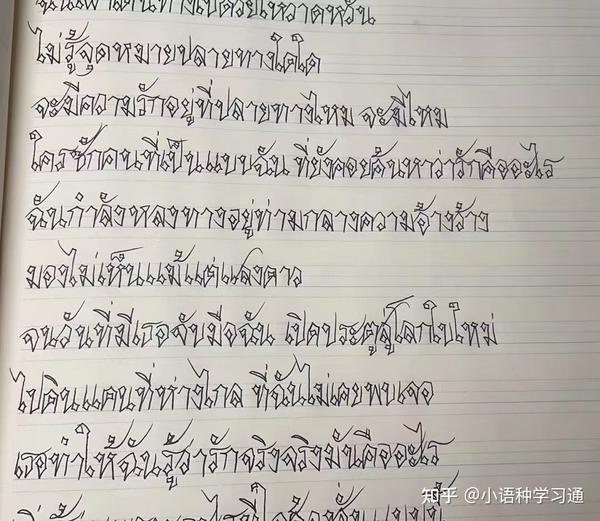 ไม่รู้จุดหมายปลายทางใดใด
จะมีความรักอยู่ที่ปลายทางไหม จะมีไหม
ใครซักคนที่เป็นแบบฉัน ที่ยังคอยค้นหาว่ารักคืออะไร
ฉันกำลังหลงทางอยู่ท่ามกลางความอ้างว้าง
มองไม่เห็นแม้แต่แสงดาว
จนวันที่มีเธอจับมือฉัน เปิดประตูสู่โลกใบใหม่
ไปดินแดนที่ห่างไกล ที่ฉันไม่เคยพบเจอ
เธอทำให้ฉันรู้ว่ารักจริงจริงมันคืออะไร
知乎 @小语种学习通